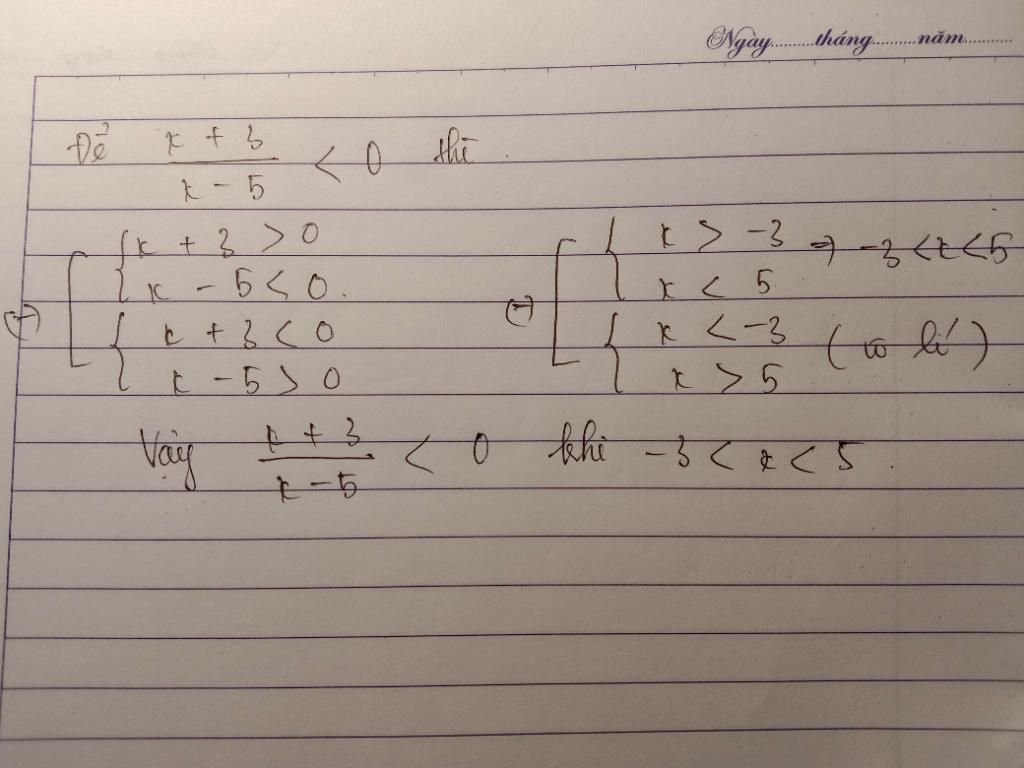 Ngày..........tháng..........năm...........
Để x + 3 / x - 5 < 0 thì.
x + 3 > 0
x - 5 < 0.
x + 3 < 0
x - 5 > 0
x > -3 ⇒ -3 < x < 5
x < 5
x < -3 (vô lí)
x > 5
Vậy x + 3 / x - 5 < 0 khi -3 < x < 5.